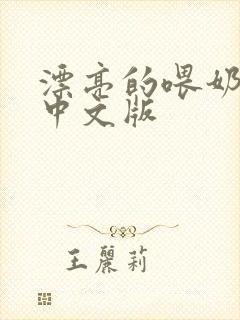 漂亮的喂奶
中文版
王麗莉